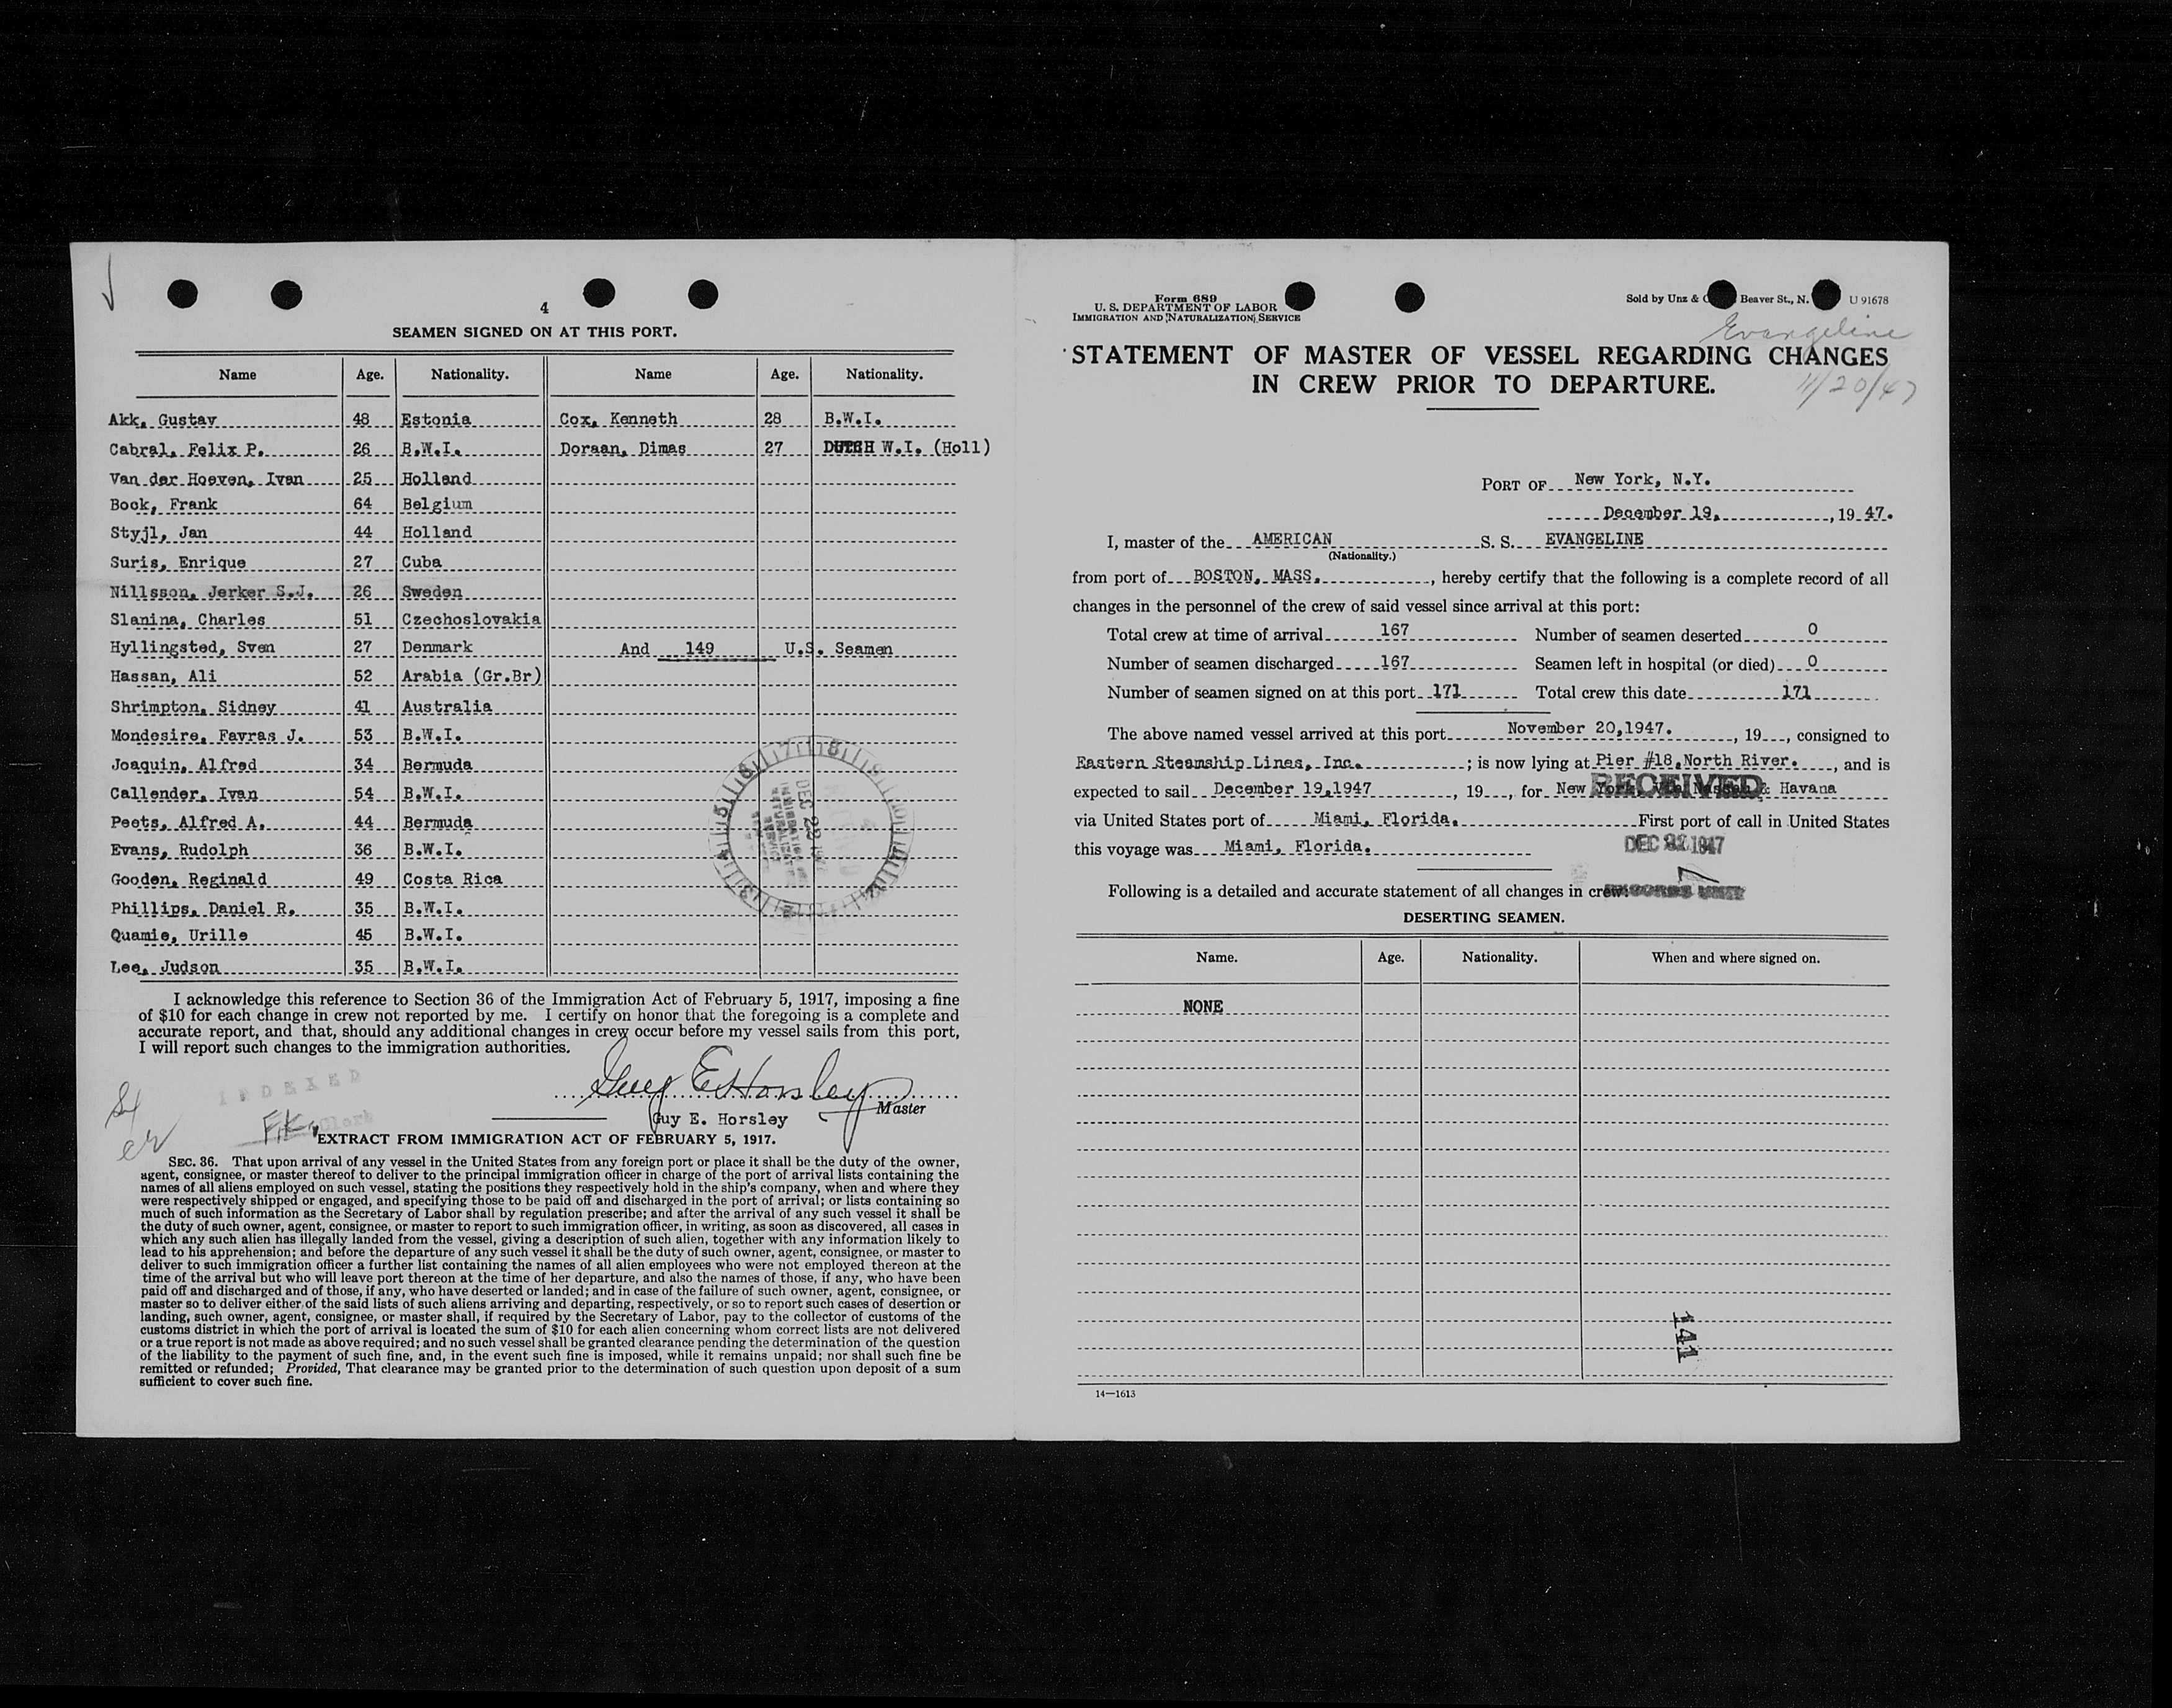 4
SEAMEN SIGNED ON AT THIS PORT.
Name Age. Nationality. Name Age. Nationality.
Akk, Gustav 48 Estonia Cox, Kenneth 28 B.W.I.
Cabral, Felix P. 26 B.W.I. Doraan, Dimas 27 DUTCH W.I. (Holl)
Van der Hoeven, Ivan 25 Holland
Bock, Frank 64 Belgium
Styjl, Jan 44 Holland
Suris, Enrique 27 Cuba
Nillsson, Jerker S.J. 26 Sweden
Slanina, Charles 51 Czechoslovakia
Hyllingsted, Sven 27 Denmark And 149 U.S. Seamen
Hassan, Ali 52 Arabia (Gr.Br)
Shrimpton, Sidney 41 Australia
Mondesire, Favras J. 53 B.W.I.
Joaquin, Alfred 34 Bermuda
Callender, Ivan 54 B.W.I.
Peets, Alfred A. 44 Bermuda
Evans, Rudolph 36 B.W.I.
Gooden, Reginald 49 Costa Rica
Phillips, Daniel R. 35 B.W.I.
Quamie, Urille 45 B.W.I.
Lee, Judson 35 B.W.I.
I acknowledge this reference to Section 36 of the Immigration Act of February 5, 1917, imposing a fine
of $10 for each change in crew not reported by me. I certify on honor that the foregoing is a complete and
accurate report, and that, should any additional changes in crew occur before my vessel sails from this port,
I will report such changes to the immigration authorities.
INDEXED
Guy E. Horsley
Master
Guy E. Horsley
F.K. Clerk
EXTRACT FROM IMMIGRATION ACT OF FEBRUARY 5, 1917.
SEC. 36. That upon arrival of any vessel in the United States from any foreign port or place it shall be the duty of the owner,
agent, consignee, or master thereof to deliver to the principal immigration officer in charge of the port of arrival lists containing the
names of all aliens employed on such vessel, stating the positions they respectively hold in the ship's company, when and where they
were respectively shipped or engaged, and specifying those to be paid off and discharged in the port of arrival; or lists containing so
much of such information as the Secretary of Labor shall by regulation prescribe; and after the arrival of any such vessel it shall be
the duty of such owner, agent, consignee, or master to report to such immigration officer, in writing, as soon as discovered, all cases in
which any such alien has illegally landed from the vessel, giving a description of such alien, together with any information likely to
lead to his apprehension; and before the departure of any such vessel it shall be the duty of such owner, agent, consignee, or master to
deliver to such immigration officer a further list containing the names of all alien employees who were not employed thereon at the
time of the arrival but who will leave port thereon at the time of her departure, and also the names of those, if any, who have been
paid off and discharged and of those, if any, who have deserted or landed; and in case of the failure of such owner, agent, consignee, or
master so to deliver either of the said lists of such aliens arriving and departing, respectively, or so to report such cases of desertion or
landing, such owner, agent, consignee, or master shall, if required by the Secretary of Labor, pay to the collector of customs of the
customs district in which the port of arrival is located the sum of $10 for each alien concerning whom correct lists are not delivered
or a true report is not made as above required; and no such vessel shall be granted clearance pending the determination of the question
of the liability to the payment of such fine, and, in the event such fine is imposed, while it remains unpaid; nor shall such fine be
remitted or refunded; Provided, That clearance may be granted prior to the determination of such question upon deposit of a sum
sufficient to cover such fine.
Form 689
U. S. DEPARTMENT OF LABOR
IMMIGRATION AND NATURALIZATION SERVICE
Sold by Unz & Beaver St., N. U 91678
Evangeline
STATEMENT OF MASTER OF VESSEL REGARDING CHANGES
IN CREW PRIOR TO DEPARTURE.
11/20/47
PORT OF New York, N.Y.
December 19, , 19 47.
I, master of the AMERICAN S. S. EVANGELINE
(Nationality.)
from port of BOSTON, MASS. , hereby certify that the following is a complete record of all
changes in the personnel of the crew of said vessel since arrival at this port:
Total crew at time of arrival 167 Number of seamen deserted 0
Number of seamen discharged 167 Seamen left in hospital (or died) 0
Number of seamen signed on at this port 171 Total crew this date 171
The above named vessel arrived at this port November 20,1947. , 19 , consigned to
Eastern Steamship Lines, Inc. ; is now lying at Pier #18,North River. , and is
expected to sail December 19,1947 , 19 , for New York, via Nassau & Havana
RECEIVED
via United States port of Miami, Florida. First port of call in United States
this voyage was Miami, Florida.
DEC 22 1947
Following is a detailed and accurate statement of all changes in crew:
DESERTING SEAMEN.
Name. Age. Nationality. When and where signed on.
NONE
141
14—1613